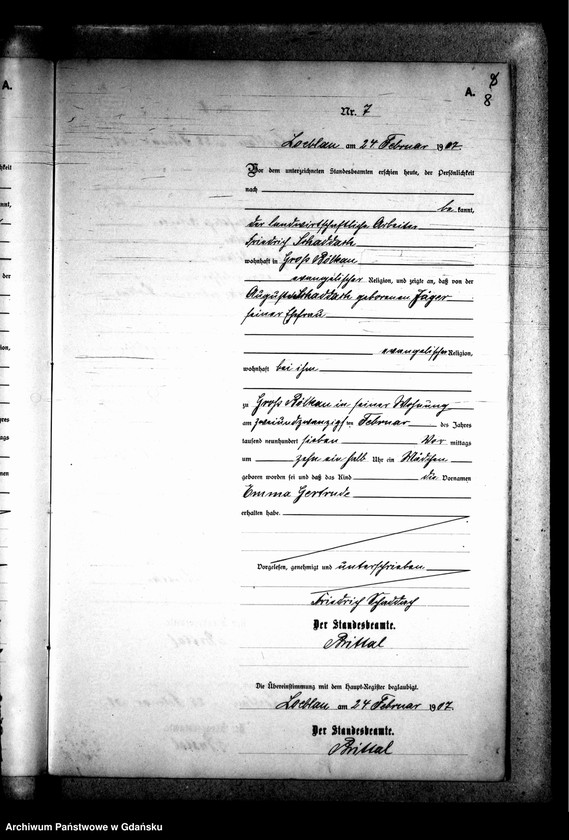 A.
A. 8
8
Nr. 7
Loeblau am 24 Februar 1907.
Vor dem unterzeichneten Standesbeamten erschien heute, der Persönlichkeit
nach
be kannt,
der landwirtschaftliche Arbeiter
Friedrich Schaddach
wohnhaft in Groß Bölkau
evangelischer Religion, und zeigte an, daß von der
Auguste Schaddach geborenen Jäger
seiner Ehefrau
evangelischer Religion,
wohnhaft bei ihm
zu Groß Bölkau in seiner Wohnung
am zweiundzwanzigsten Februar des Jahres
tausend neunhundert sieben Vor mittags
um zehn ein halb Uhr ein Mädchen
geboren worden sei und daß das Kind die Vornamen
Emma Gertrude
erhalten habe.
Vorgelesen, genehmigt und unterschrieben
Friedrich Schaddach
Der Standesbeamte.
Brittal
Die Übereinstimmung mit dem Haupt-Register beglaubigt.
Loeblau am 24 Februar 1907.
Der Standesbeamte.
Brittal
Archiwum Państwowe w Gdańsku